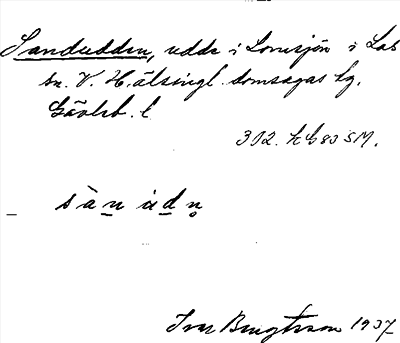 Sandudden, udde i Lomsjön i Los
sn. V. Hälsingl. domsagas tg.
Gävleb. l
302. k G 80 SM.
sàn ùdn
Ivar Bengtsson 1937